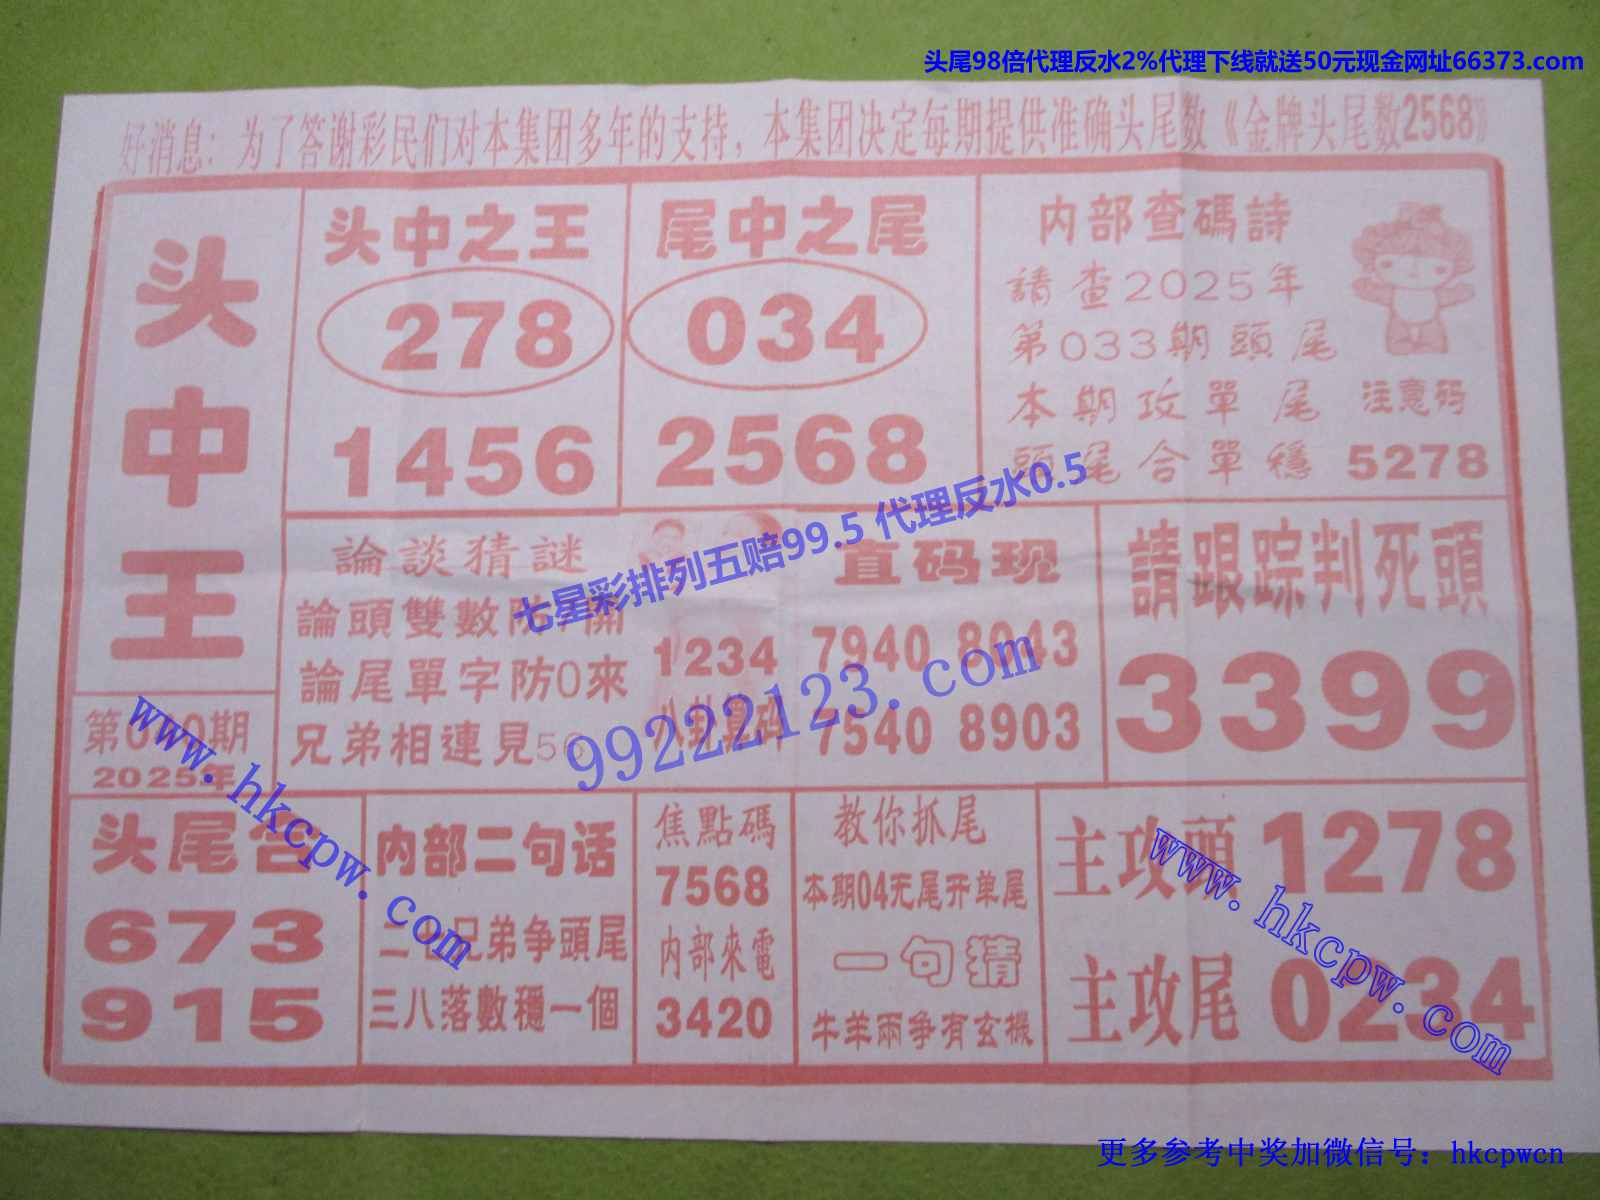 头尾98倍代理反水2%代理下线就送50元现金网址66373.com
好消息：为了答谢彩民们对本集团多年的支持，本集团决定每期提供准确头尾数《金牌头尾数2568》
头中王
第0 0期
2025年
头中之王
278
1456
尾中之尾
034
2568
内部查碼詩
請查2025年
第033期頭尾
本期攻單尾
頭尾合單穩
注意码
5278
論談猜謎
論頭雙數防 開
論尾單字防0來
兄弟相連見56
1234
八卦算码
直码现
7940 8043
7540 8903
請跟踪判死頭
3399
七星彩排列五赔99.5 代理反水0.5
99222123.com
www.hkcpw.com
头尾合
673
915
内部二句话
二七兄弟争頭尾
三八落數穩一個
焦點碼
7568
内部來電
3420
教你抓尾
本期04无尾开单尾
一句猜
牛羊兩争有玄機
主攻頭 1278
主攻尾 0234
www.hkcpw.com
更多参考中奖加微信号：hkcpwcn